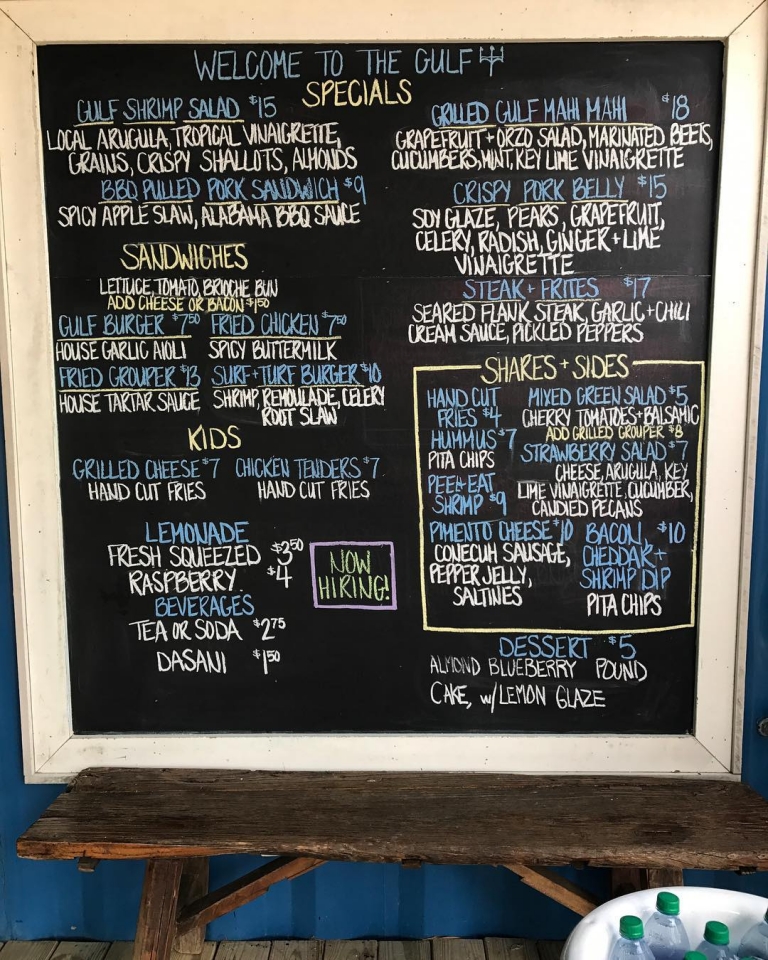 WELCOME TO THE GULF
SPECIALS
GULF SHRIMP SALAD $15
LOCAL ARUGULA, TROPICAL VINAIGRETTE,
GRAINS, CRISPY SHALLOTS, ALMONDS
BBQ PULLED PORK SANDWICH $9
SPICY APPLE SLAW, ALABAMA BBQ SAUCE
GRILLED GULF MAHI MAHI $18
GRAPEFRUIT + ORZO SALAD, MARINATED BEETS,
CUCUMBERS, MINT, KEY LIME VINAIGRETTE
CRISPY PORK BELLY $15
SOY GLAZE, PEARS, GRAPEFRUIT,
CELERY, RADISH, GINGER + LIME
VINAIGRETTE
STEAK + FRITES $17
SEARED FLANK STEAK, GARLIC + CHILI
CREAM SAUCE, PICKLED PEPPERS
SANDWICHES
LETTUCE, TOMATO, BRIOCHE BUN
ADD CHEESE OR BACON $1.50
GULF BURGER $7.50
HOUSE GARLIC AIOLI
FRIED CHICKEN $7.50
SPICY BUTTERMILK
FRIED GROUPER $13
HOUSE TARTAR SAUCE
SURF + TURF BURGER $10
SHRIMP REMOULADE, CELERY
ROOT SLAW
KIDS
GRILLED CHEESE $7
HAND CUT FRIES
CHICKEN TENDERS $7
HAND CUT FRIES
LEMONADE
FRESH SQUEEZED $3.50
RASPBERRY $4
BEVERAGES
TEA OR SODA $2.75
DASANI $1.50
NOW
HIRING!
SHARES + SIDES
HAND CUT
FRIES $4
HUMMUS $7
PITA CHIPS
PEEL + EAT
SHRIMP $9
MIXED GREEN SALAD $5
CHERRY TOMATOES + BALSAMIC
ADD GRILLED GROUPER $8
STRAWBERRY SALAD $7
CHEESE, ARUGULA, KEY
LIME VINAIGRETTE, CUCUMBER,
CANDIED PECANS
PIMENTO CHEESE $10
CONECUH SAUSAGE,
PEPPER JELLY,
SALTINES
BACON, $10
CHEDDAR +
SHRIMP DIP
PITA CHIPS
DESSERT $5
ALMOND BLUEBERRY POUND
CAKE, w/ LEMON GLAZE